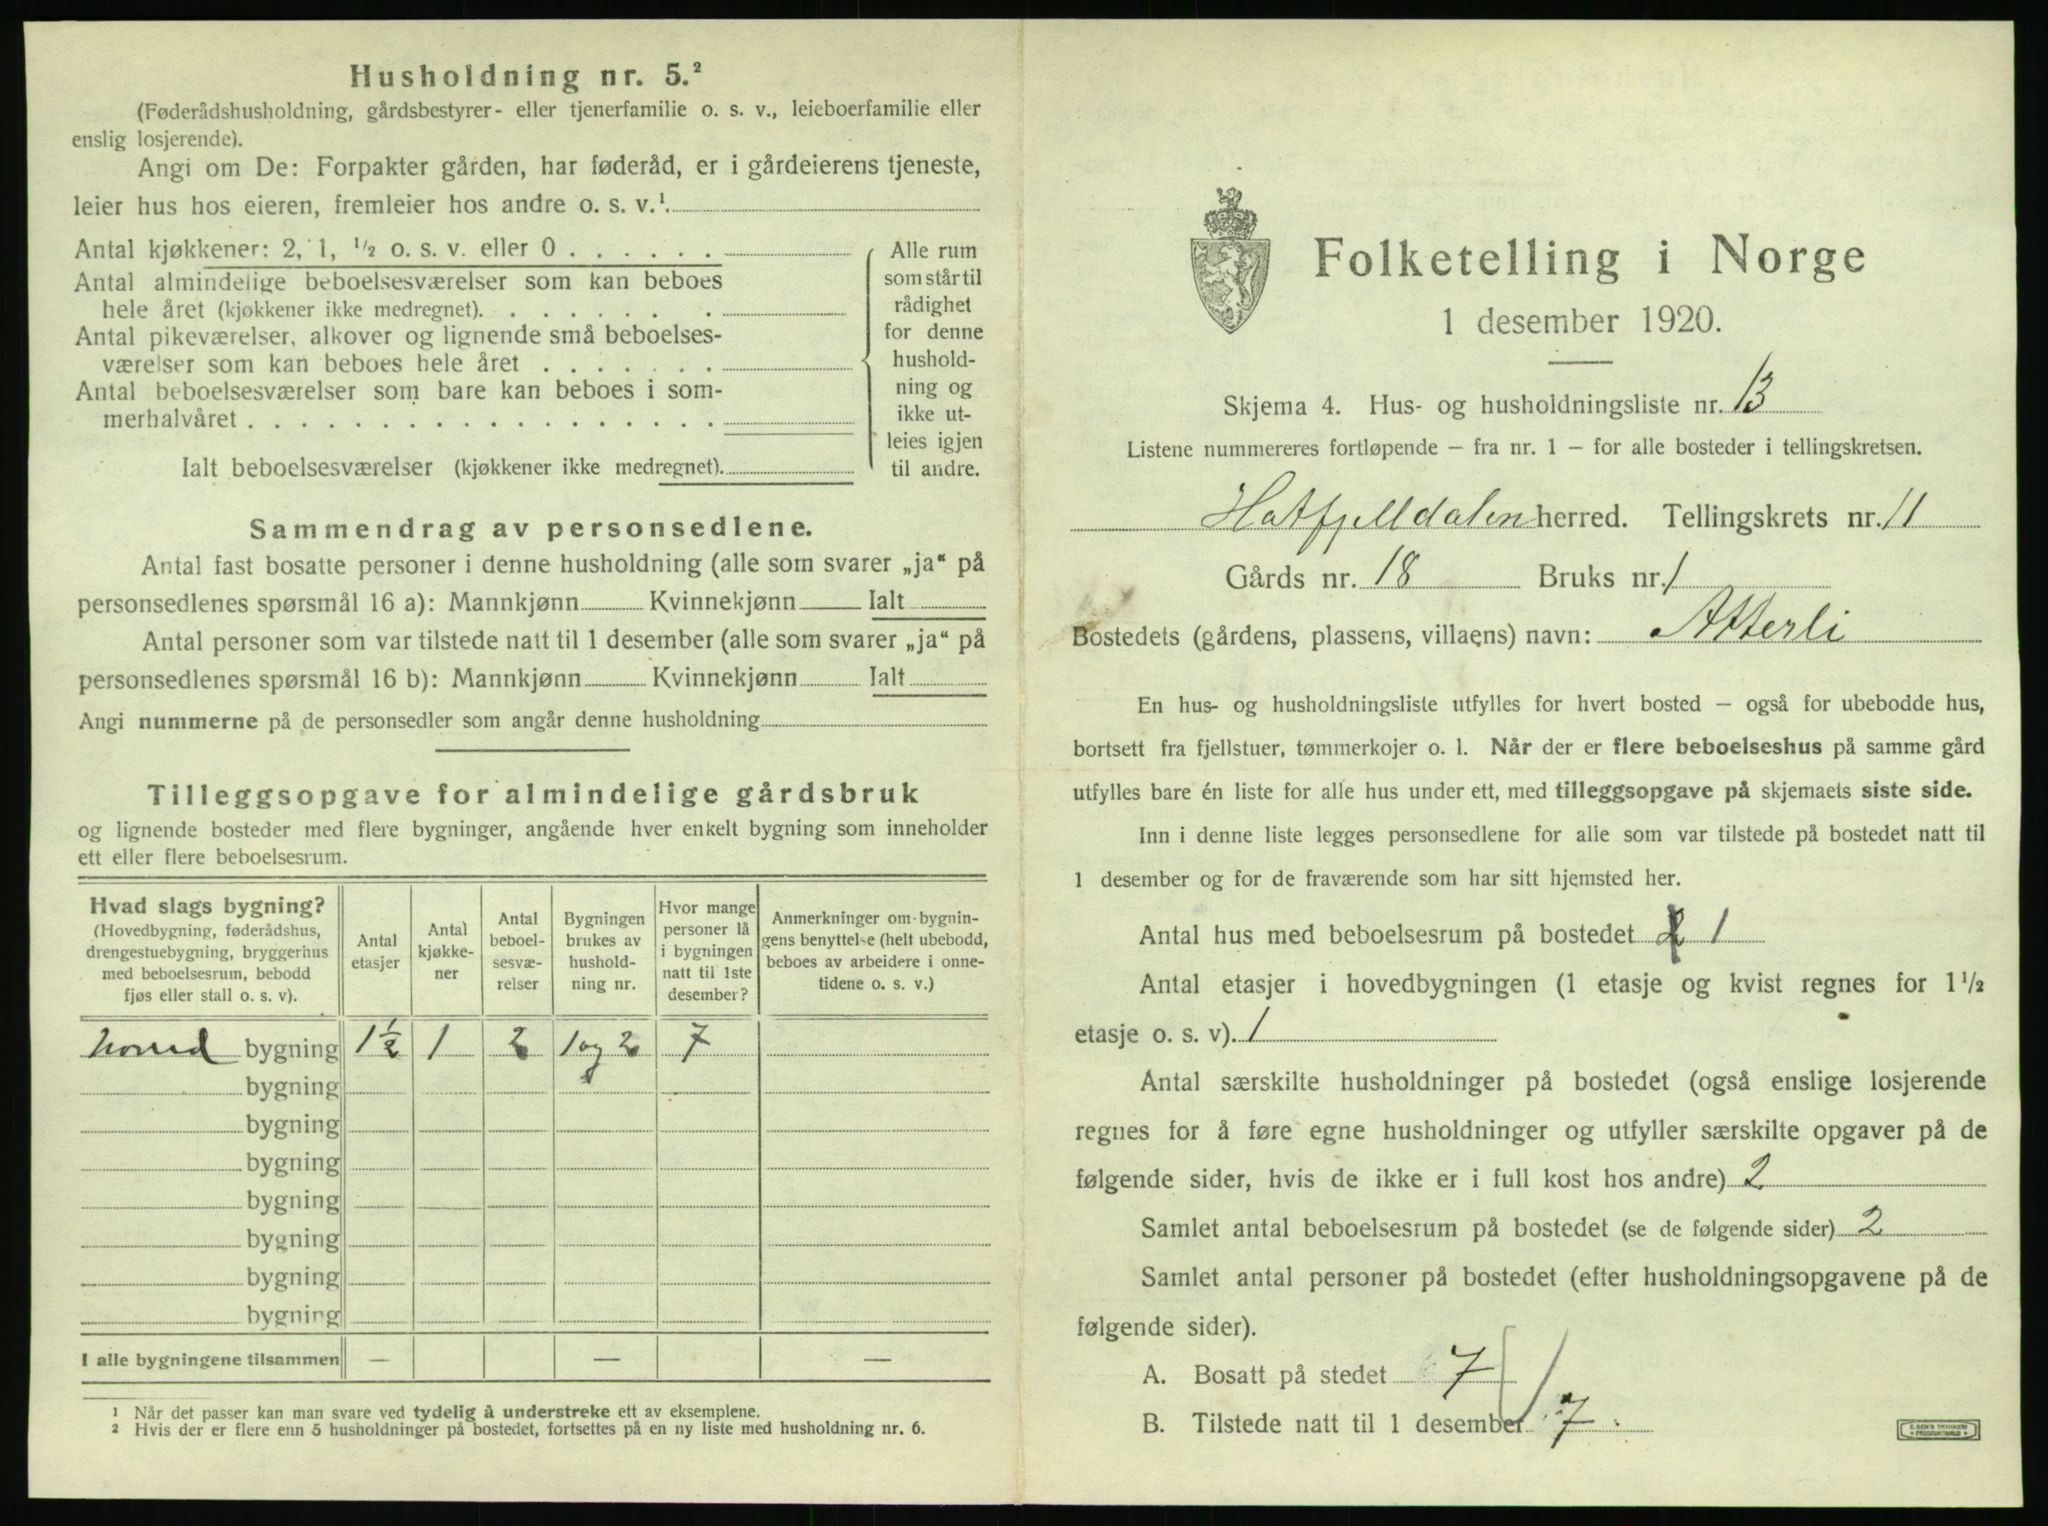 Husholdning nr. 5.²
(Føderådshusholdning, gårdsbestyrer- eller tjenerfamilie o. s. v., leieboerfamilie eller
enslig losjerende).
Angi om De: Forpakter gården, har føderåd, er i gårdeierens tjeneste,
leier hus hos eieren, fremleier hos andre o. s. v.¹.
Antal kjøkkener: 2, 1, ½ o. s. v. eller 0 . . . . . .
Antal almindelige beboelsesværelser som kan beboes
hele året (kjøkkener ikke medregnet). . . . . . . .
Antal pikeværelser, alkover og lignende små beboelses-
værelser som kan beboes hele året . . . . . . .
Antal beboelsesværelser som bare kan beboes i som-
merhalvåret . . . . . . . . . . . . . . . . . .
Ialt beboelsesværelser (kjøkkener ikke medregnet).
Alle rum
som står til
rådighet
for denne
hushold-
ning og
ikke ut-
leies igjen
til andre.
Sammendrag av personsedlene.
Antal fast bosatte personer i denne husholdning (alle som svarer „ja“ på
personsedlenes spørsmål 16 a): Mannkjønn Kvinnekjønn Ialt
Antal personer som var tilstede natt til 1 desember (alle som svarer „ja“ på
personsedlenes spørsmål 16 b): Mannkjønn Kvinnekjønn Ialt
Angi nummerne på de personsedler som angår denne husholdning
Tilleggsopgave for almindelige gårdsbruk
og lignende bosteder med flere bygninger, angående hver enkelt bygning som inneholder
ett eller flere beboelsesrum.
Hvad slags bygning?
(Hovedbygning, føderådshus,
drengestuebygning, bryggerhus
med beboelsesrum, bebodd
fjøs eller stall o. s. v).
Antal
etasjer
Antal
kjøkke-
ner
Antal
beboel-
sesvæ-
relser
Bygningen
brukes av
hushold-
ning nr.
Hvor mange
personer lå
i bygningen
natt til 1ste
desember?
Anmerkninger om bygnin-
gens benyttelse (helt ubebodd,
beboes av arbeidere i onne-
tidene o. s. v.)
hoved bygning 1½ 1 2 1 og 2 7
bygning
bygning
bygning
bygning
bygning
bygning
bygning
I alle bygningene tilsammen — — —
¹ Når det passer kan man svare ved tydelig å understreke ett av eksemplene.
² Hvis der er flere enn 5 husholdninger på bostedet, fortsettes på en ny liste med husholdning nr. 6.
Folketelling i Norge
1 desember 1920.
Skjema 4. Hus- og husholdningsliste nr. 13
Listene nummereres fortløpende – fra nr. 1 – for alle bosteder i tellingskretsen.
Hatfjelldalen herred. Tellingskrets nr. 11
Gårds nr. 18 Bruks nr. 1
Bostedets (gårdens, plassens, villaens) navn: Atterli
En hus- og husholdningsliste utfylles for hvert bosted – også for ubebodde hus,
bortsett fra fjellstuer, tømmerkojer o. l. Når der er flere beboelseshus på samme gård
utfylles bare én liste for alle hus under ett, med tilleggsopgave på skjemaets siste side.
Inn i denne liste legges personsedlene for alle som var tilstede på bostedet natt til
1 desember og for de fraværende som har sitt hjemsted her.
Antal hus med beboelsesrum på bostedet 2 1
Antal etasjer i hovedbygningen (1 etasje og kvist regnes for 1½
etasje o. s. v). 1
Antal særskilte husholdninger på bostedet (også enslige losjerende
regnes for å føre egne husholdninger og utfyller særskilte opgaver på de
følgende sider, hvis de ikke er i full kost hos andre) 2
Samlet antal beboelsesrum på bostedet (se de følgende sider) 2
Samlet antal personer på bostedet (efter husholdningsopgavene på de
følgende sider).
A. Bosatt på stedet 7
B. Tilstede natt til 1 desember 7